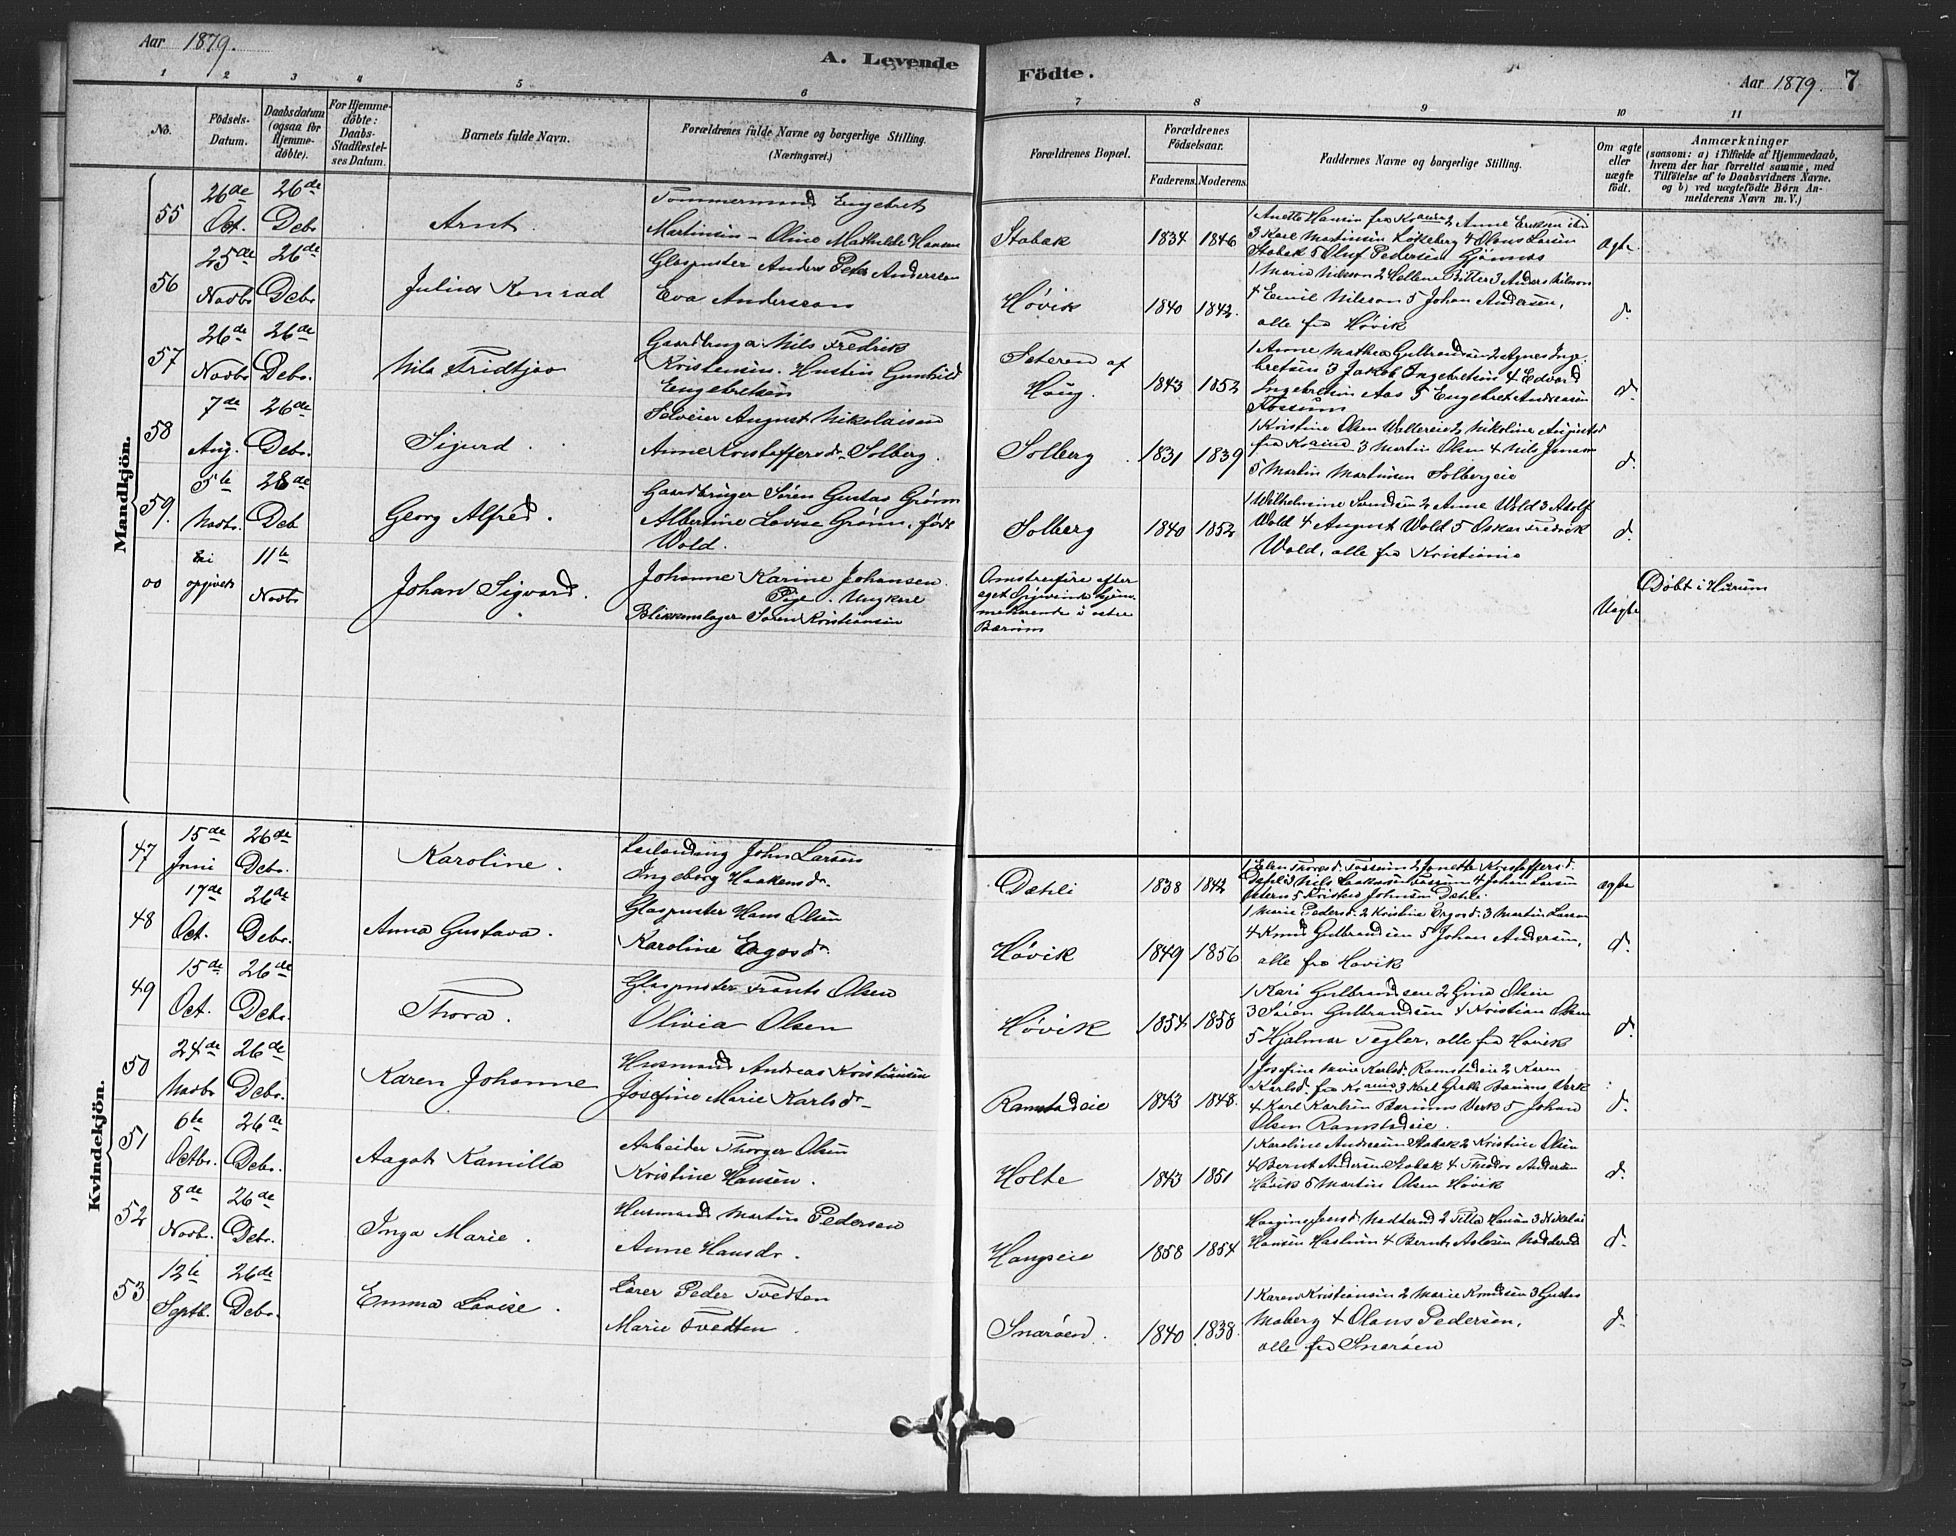 Aar 1879.
A. Levende
Födte.
Aar 1879. 7
1 2 3 4 5 6
7 8 9 10 11
No.
Födsels-Datum.
Daabsdatum (ogsaa for Hjemme-döbte).
For Hjemme-döbte: Daabs-Stadfæstel-ses Datum.
Barnets fulde Navn.
Forældrenes fulde Navne og borgerlige Stilling. (Næringsvei.)
Forældrenes Bopæl.
Forældrenes Födselsaar.
Faderens. Moderens.
Faddernes Navne og borgerlige Stilling.
Om ægte eller uægte födt.
Anmærkninger
(saasom: a) i Tilfælde af Hjemmedaab,
hvem der har forrettet samme, med
Tilföielse af to Daabsvidners Navne.
og b) ved uægtefödte Börn An-
melderens Navn m. V.)
Mandkjön.
55 26de Oct. 26de Debr. Arnt.
Tømmermand Engebret
Martinsen - Oline Mathilde Hansen
Stabæk 1834 1846
1 Anette Hansen fra Krania 2 Anne Eriksen
3 Karl Martinsen Løkeberg 4 Olaus Larsen
Stabæk 5 Oluf Pedersen Gjønnæs
ægte
56 25de Novbr. 26de Debr. Julius Konrad
Glaspuster Anders Peter Andersen
Eva Andersson
Høvik 1840 1842.
1 Maria Nilsson 2 Hellene Bitter 3 Anders Nilsson
4 Emil Nilsson 5 Johan Andersen,
alle fra Høvik
d.
57 26de Novbr. 26de Debr. Nils Fridtjov
Gaardbruger Nils Fredrik
Kristensen. Hustru Gunhild
Engebretsen
Sæteren af
Houg. 1843 1852
1 Anne Mathea Gulbrandsen 2 Agnes Inge-
bretsen 3 Jakob Ingebretsen 4 Edvard
Ingebretsen Aas 5 Engebret Andreasen
Fossum
d.
58 7de Aug. 26de Debr. Sigurd.
Selveier August Nikolaisen
Anne Kristoffersdr. Solberg.
Solberg. 1831 1839
1 Kristine Olsen 2 Nikoline Augusta
fra Krania 3 Martin Olsen 4 Nils Jensen
5 Martin Martinsen Solbergeie
d.
59. 5te Novbr. 28de Deb Georg Alfred.
Gaardbruger Søren Gustav Grønn
Albertine Lovise Grønn, født
Wold.
Solberg 1840 1852
1 Wilhelmine Svendsen 2 Anne Wold 3 Adolf
Wold 4 August Wold 5 Oskar Fredrik
Wold, alle fra Kristiania
d.
00 Ei opgivet 11te Novbr Johan Sigvard.
Johanne Karine Johansen.
Pige. Ungkarl
Blikkenslager Søren Kristiansen
efter
eget Opgivende hjem-
mehørende i østre
Bærum
Uægte
Døbt i Hurum
Kvindekjön.
47 15de Juni 26de Debr. Karoline.
Leilending John Larsen
Ingeborg Haakensdr.
Dæhli 1838 1842
1 Elen Thorsd. Fossum 2 Jonette Kristoffersd.
Dæhli 3 Nils Fossum 4 Johan Larsen
5 Kristen Johnsen Dæhli
ægte
48 17de Oct. 26de Debr. Anna Gustava.
Glaspuster Hans Olsen
Karoline
Høvik 1849 1856
1 Marie Pedersd. 2 Kristine 3 Martin Larsen
4 Knud Gulbrandsen 5 Johan Andersen,
alle fra Høvik
d.
49 15de Oct. 26de Debr. Thora.
Glaspuster Frants Olsen
Olivia Olsen
Høvik 1854 1858
1 Kari Gulbrandsen 2 Gina Olsen
3 Søren Gulbrandsen 4 Kristian Olsen
5 Hjalmar Tegler, alle fra Høvik
d.
50 24de Novbr 26de Debr. Karen Johanne
Husmand Andreas Kristiansen
Josefine Marie Karlsdr.
Ramstadeie 1843 1848.
1 Josefine Karlsd. Ramstadeie 2 Karen
Karlsd. fra Krania 3 Karl Bærums Verk
4 Karl Karlsen Bærums Verk 5 Johan
Olsen Ramstadeie.
d.
51 6te Octbr. 26de Debr. Aagot Kamilla
Arbeider Thorger Olsen
Kristine Hansen.
Holte 1843 1851
1 Karoline Andersen Stabæk 2 Kristine Olsen
4 Bernt Andersen Stabæk 4 Theodor Andersen
Høvik 5 Martin Olsen Høvik
d.
52 8de Novbr. 26de Debr. Inga Marie.
Husmand Martin Pedersen
Anne Hansdr.
Haugseie 1858 1854
Jensd. Nadderud 2 Hansen 3 Nikolai
Hansen Haslum 4 Bernt Aslesen Nadderud
d.
53 12te Septb. 26de Debr. Emma Lovise.
Lærer Peder Tvedten
Marie Tvedten.
Snarøen. 1840 1838.
1 Karen Kristiansen 2 Marie Knudsen 3 Gustav
Moberg 4 Olaus Pedersen,
alle fra Snarøen
d.